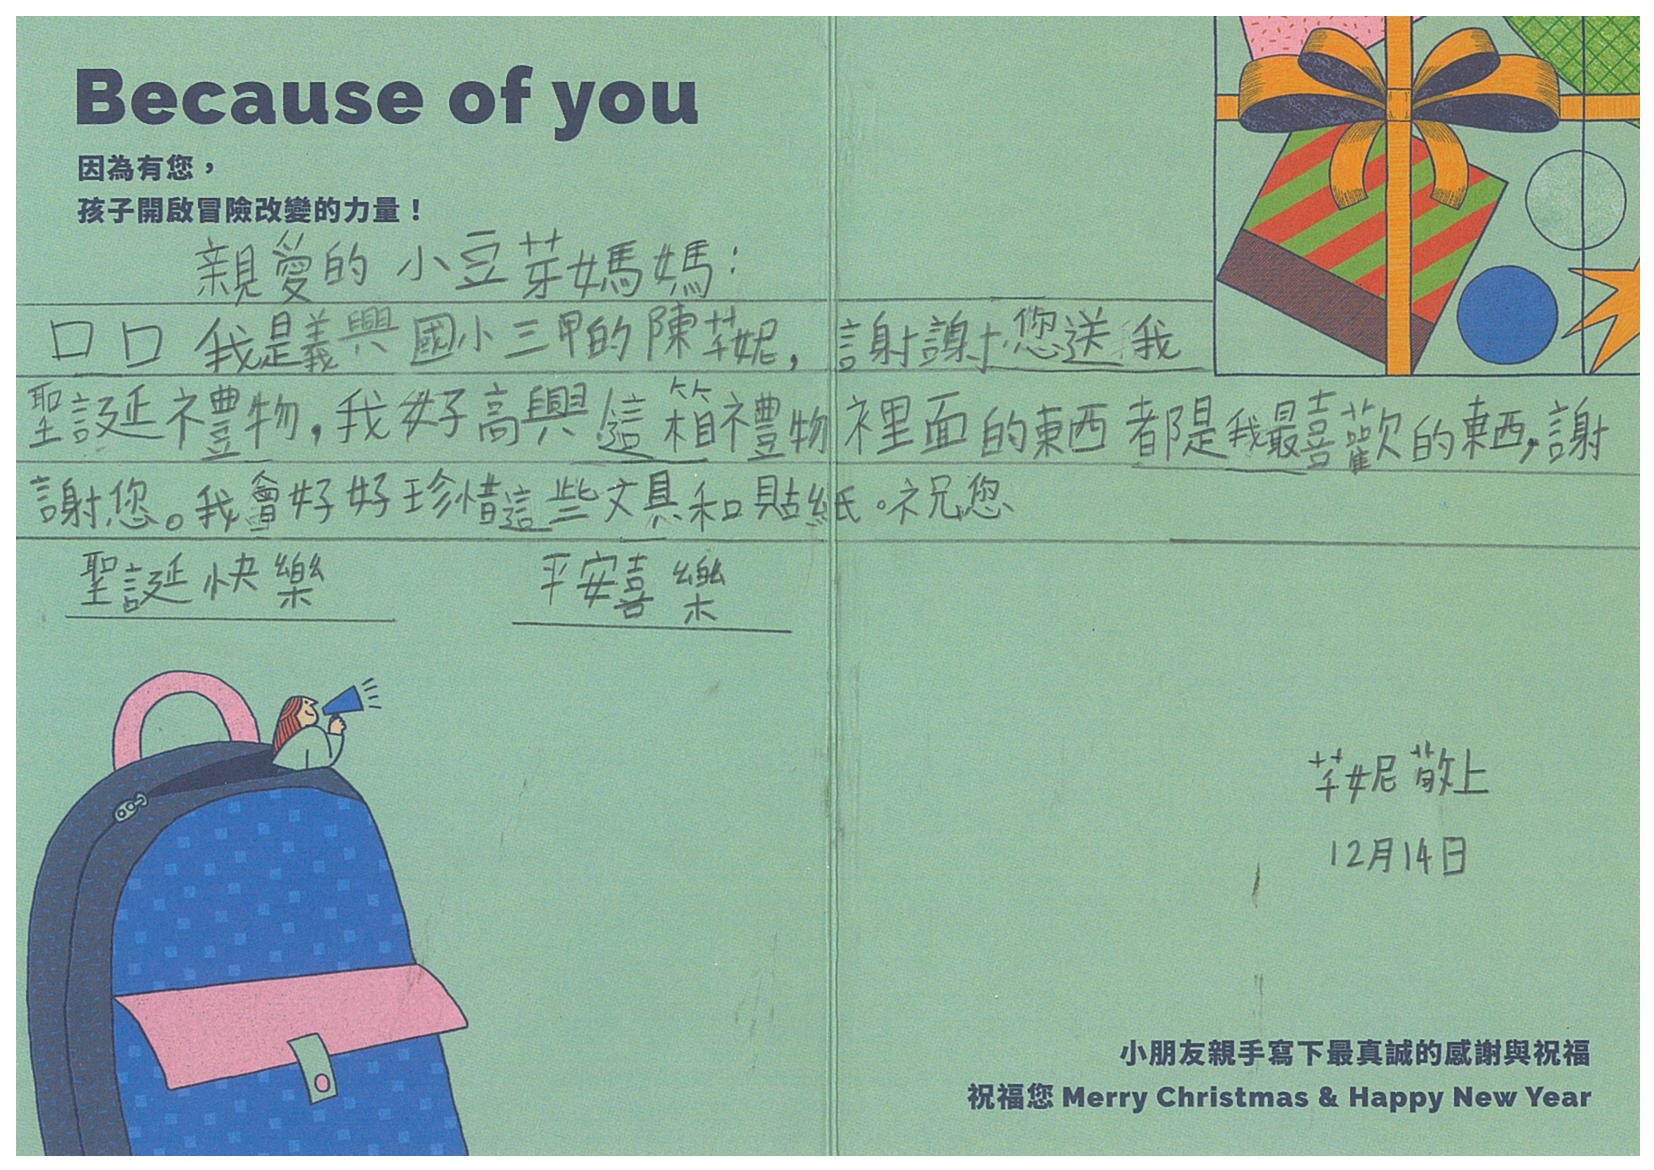 Because of you
因為有您，
孩子開啟冒險改變的力量！
親愛的 小豆芽媽媽：
口口 我是義興國小三甲的陳芊妮，謝謝您送我
聖誕禮物，我好高興這箱禮物裡面的東西都是我最喜歡的東西，謝
謝您。我會好好珍惜這些文具和貼紙。祝您
聖誕快樂 平安喜樂
芊妮敬上
12月14日
小朋友親手寫下最真誠的感謝與祝福
祝福您 Merry Christmas & Happy New Year